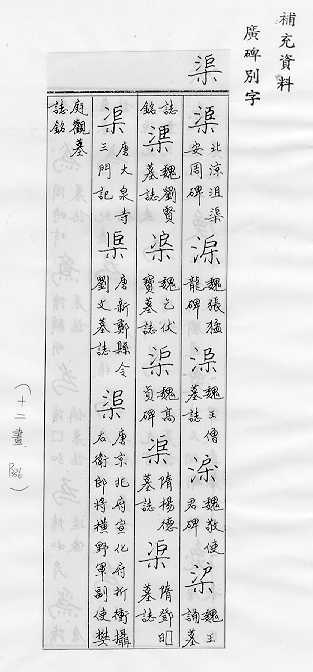 補充資料
廣碑別字
渠
渠 北涼沮渠安周碑 渠 魏張猛龍碑 渠 魏王僧墓誌 渠 魏敬使君碑 渠 魏王誦墓
誌銘 渠 魏劉賢墓誌 渠 魏乞伏寶墓誌 渠 魏高貞碑 渠 隋楊德墓誌 渠 隋鄧昞墓誌
渠 唐大泉寺三門記 渠 唐新鄭縣令劉文墓誌 渠 唐京兆府宣化府折衝攝右衛郎將橫野軍副使樊
庭觀墓誌銘
(十二畫